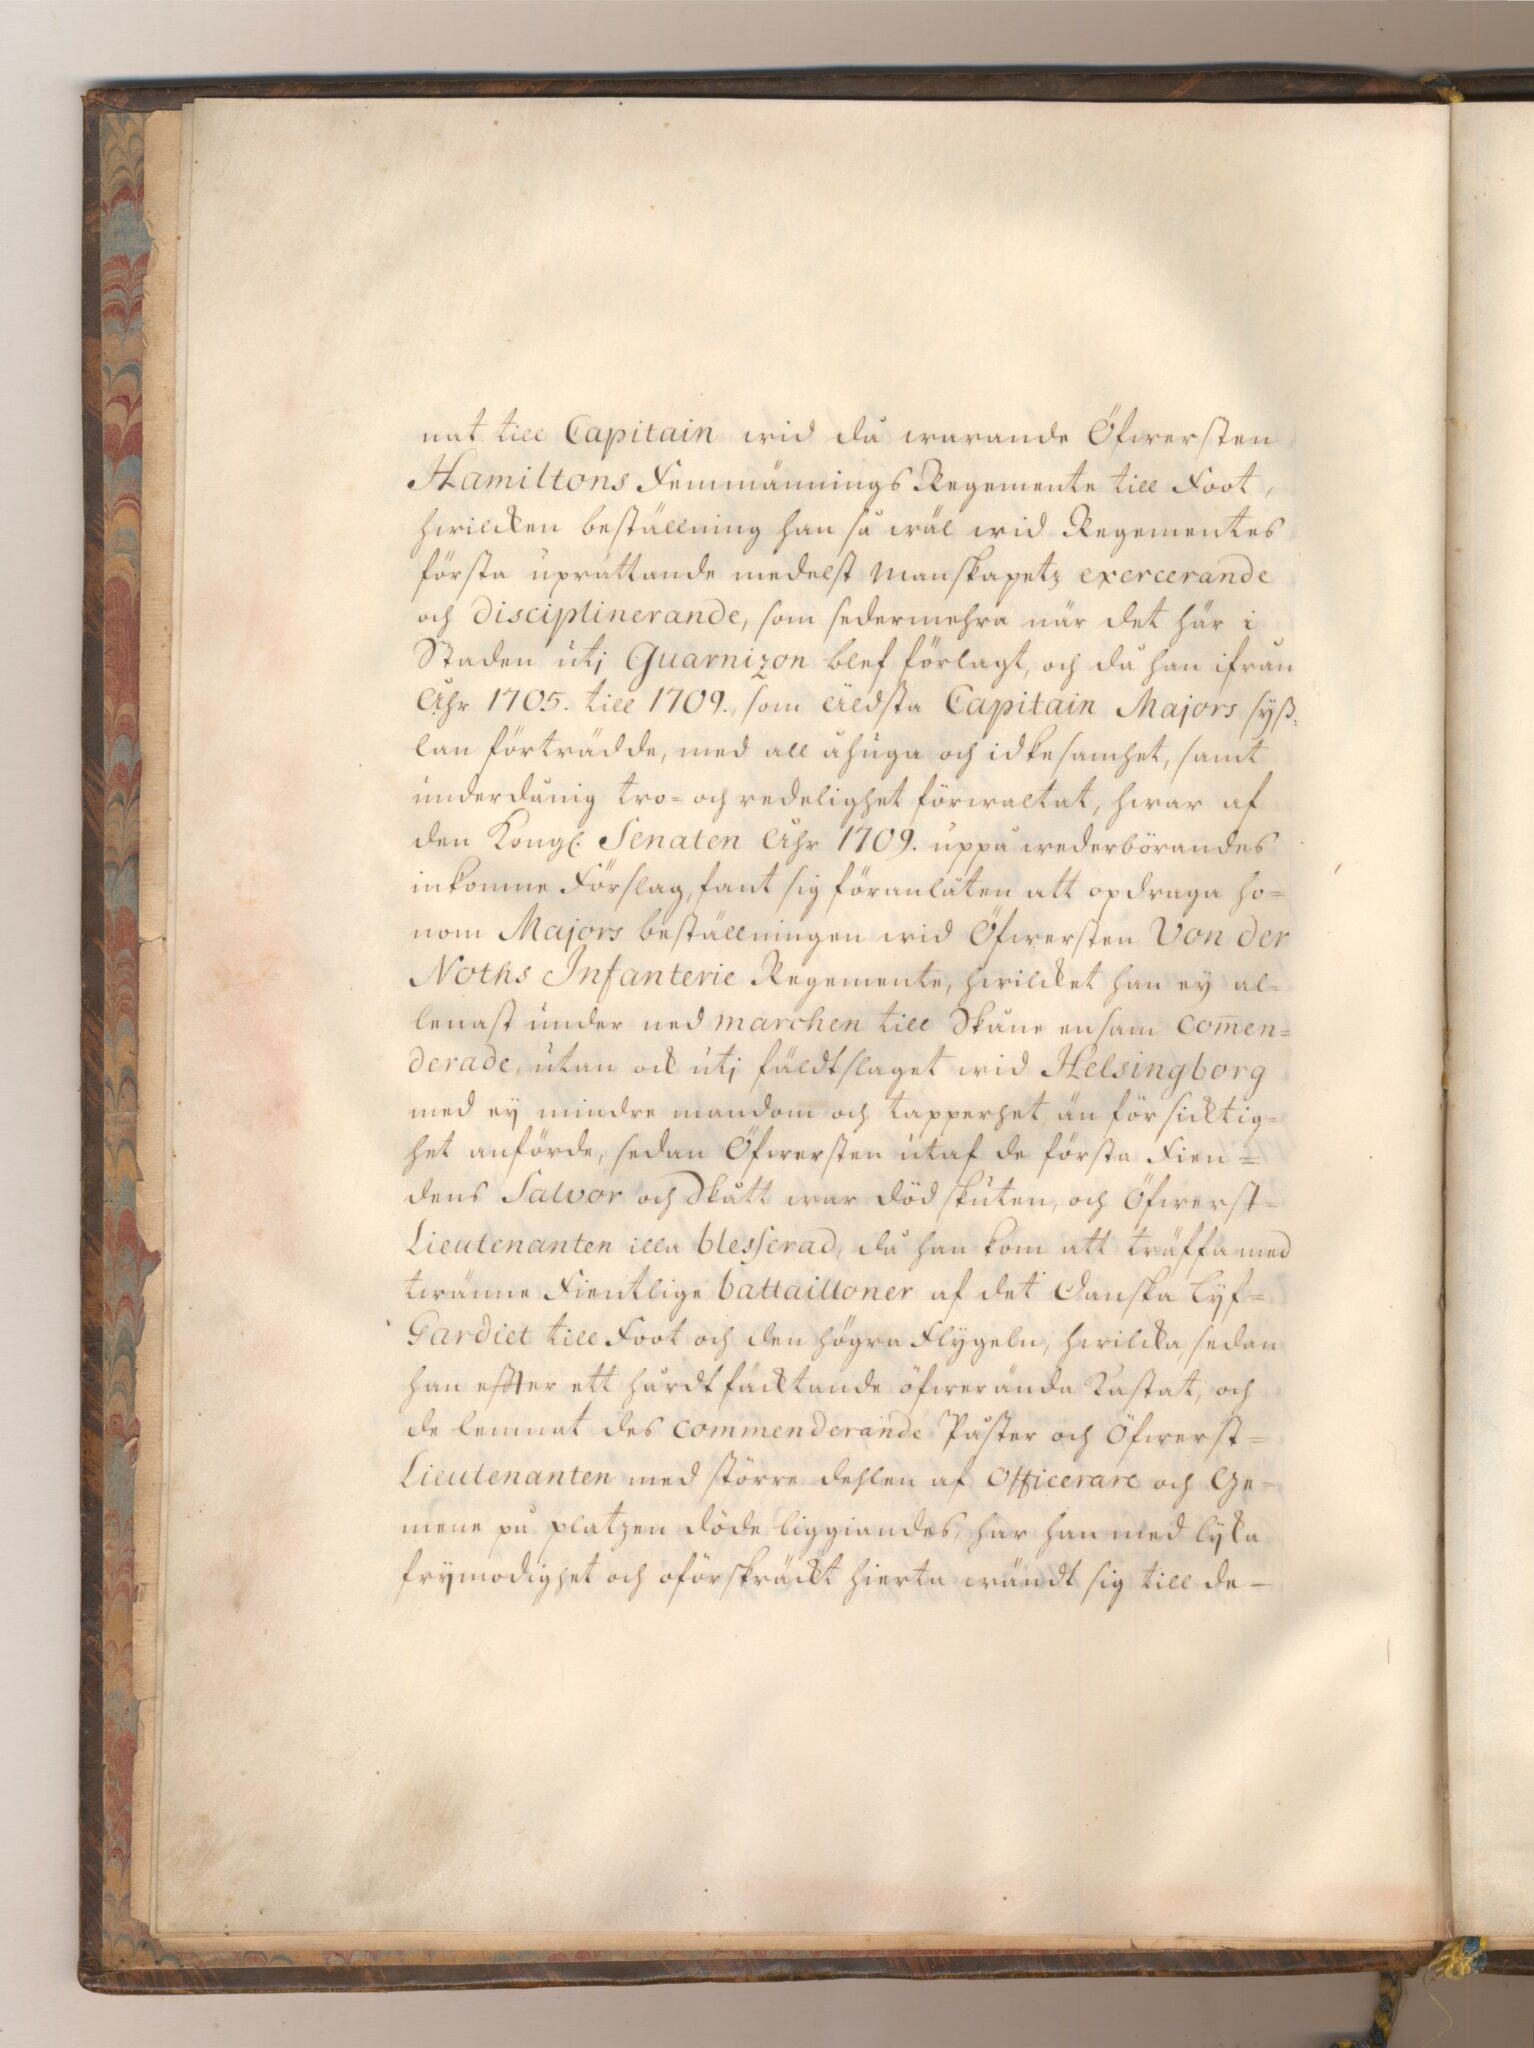 nat till Capitain wid då warande Öfwersten
Hamiltons Femmännings Regemente till Foot,
hwilcken beställning han så wäl wid Regementes
första uprättande medelst Manskapetz exercerande
och disciplinerande, som sedermehra när det här i
Staden utj Guarnizon blef förlagt, och då han ifrån
Åhr 1705. till 1709., som äldsta Capitain Majors syß-
lan förträdde, med all åhuga och idkesamhet, samt
underdånig tro- och redelighet förwaltat, hwar af
den Kongl. Senaten Åhr 1709. uppå wederbörandes
inkomne Förslag, fant sig föranlåten att opdraga ho-
nom Majors beställningen wid Öfwersten Von der
Noths Infanterie Regemente, hwilcket han ey al-
lenast under ned marchen till Skåne ensam com̄en-
derade, utan ock utj fäldtslaget wid Helsingborg
med ey mindre mandom och tapperhet, än försicktig-
het anförde, sedan Öfwersten utaf de första Fien-
dens Salvor och Skått war död skuten, och Öfwerst-
Lieutenanten illa blesserad, då han kom att träffa med
twänne Fientlige battailloner af det Danska Lyf-
Gardiet till Foot och den högra Flygeln, hwilcka, sedan
han effter ett hårdt fäcktande öfwerända Kastat, och
de lemnat des commenderande Påster och Öfwerst-
Lieutenanten med större dehlen af Officerare och Ge-
mene på platzen döde liggiandes, har han med lyka
frymodighet och oförskräckt hierta wändt sig till de-